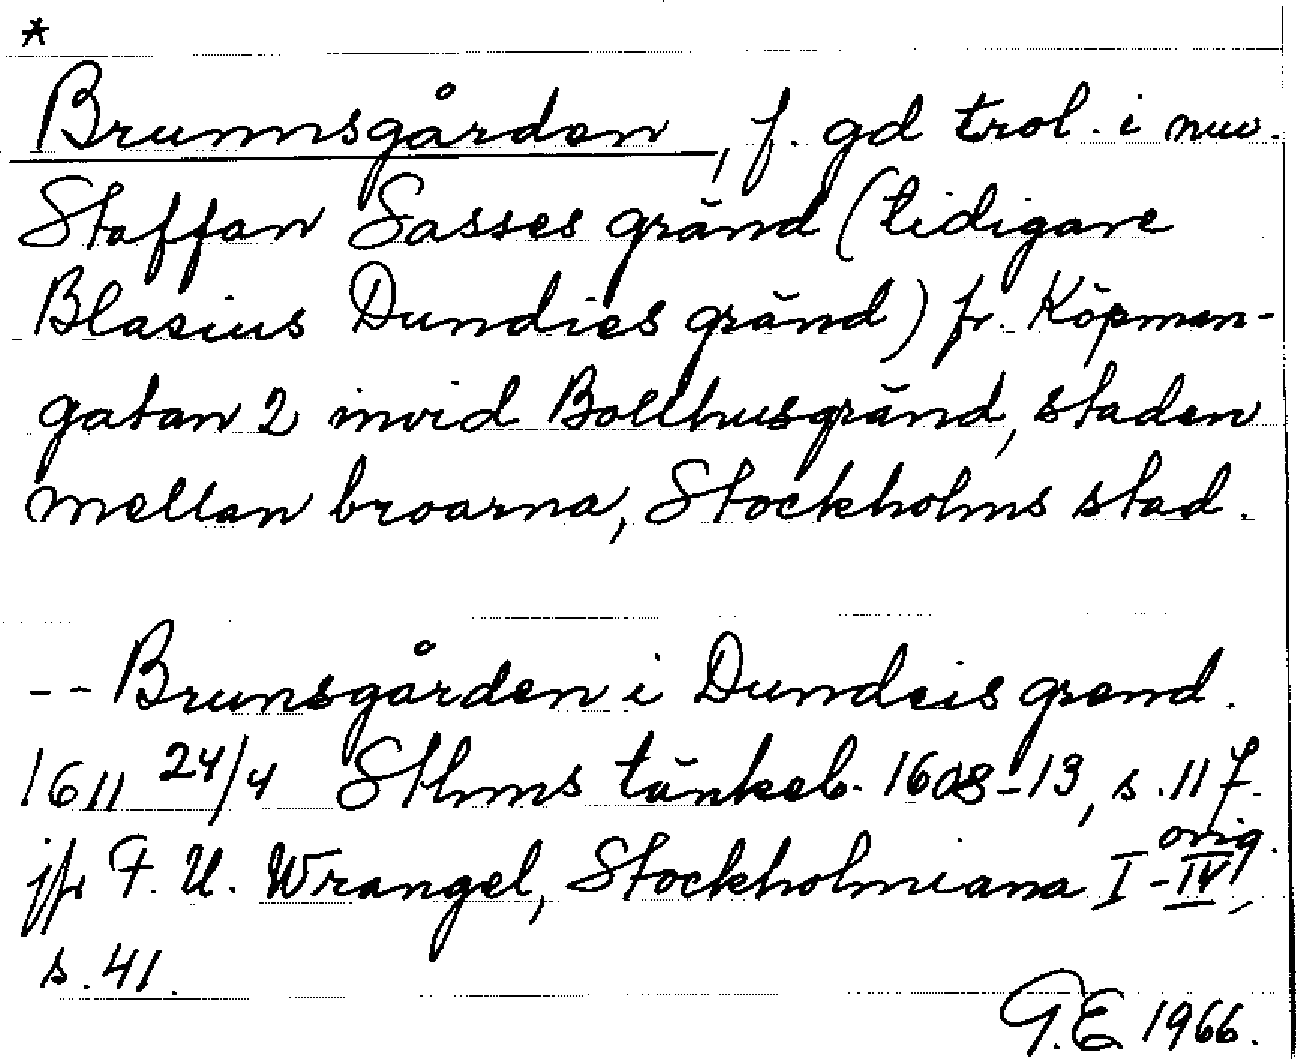 *
Brunnsgården, f. gd trol. i nuv.
Staffan Sasses gränd (tidigare
Blasius Dundies gränd) fr. Köpman-
gatan 2 invid Bollhusgränd, staden
mellan broarna, Stockholms stad.
-- Brunsgården i Dundeis grend.
1611 24/4 Sthms tänkeb. 1608-13, s. 117.
orig.
jfr F. U. Wrangel, Stockholmiana I-IV,
s. 41.
G.E 1966.